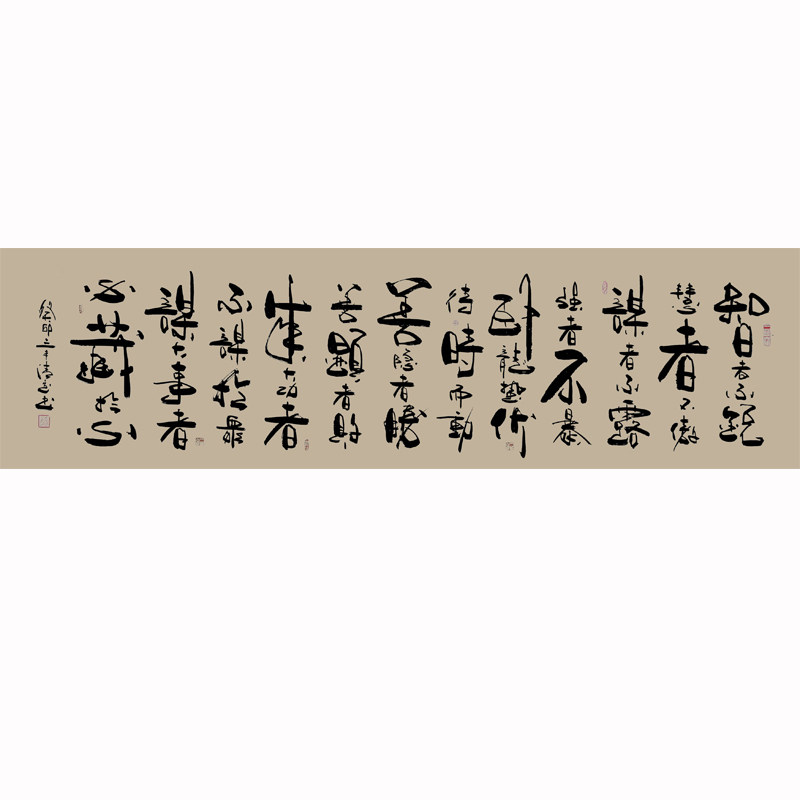 智者不銳
慧者不傲
謀者不露
強者不暴
臥龍蟄伏
待時而動
善隱者勝
善顯者敗
成大功者
不謀於眾
謀大事者
必藏於心
癸卯